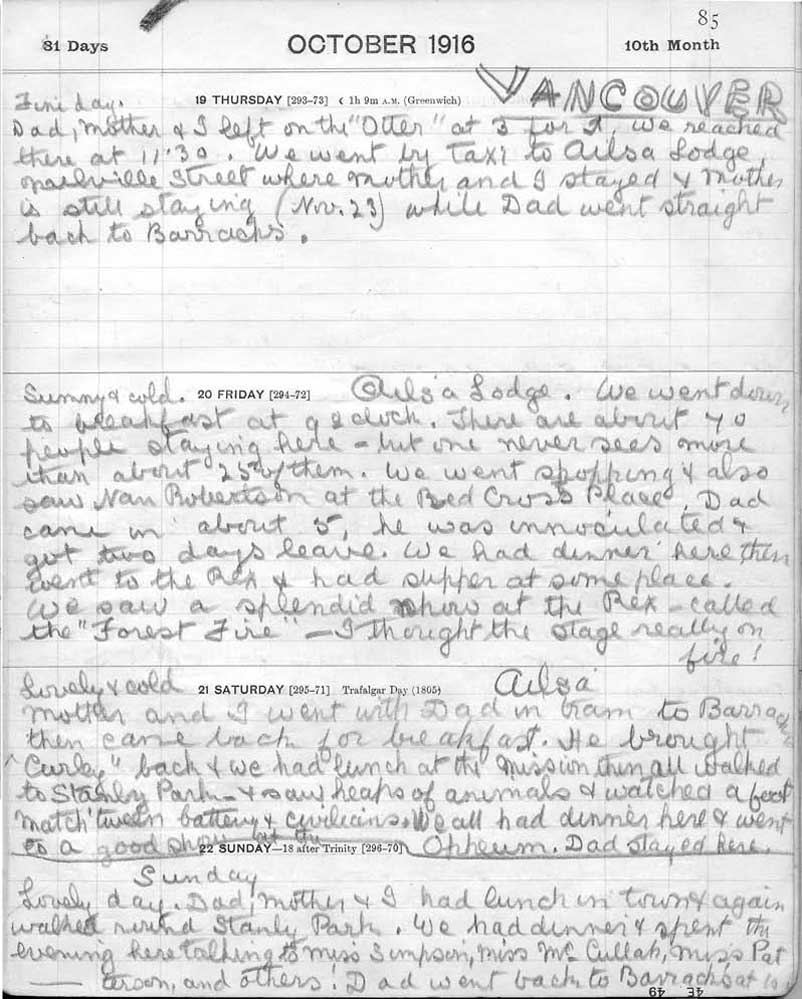 85
31 Days OCTOBER 1916 10th Month
Fine day. 19 THURSDAY [293-73] ☾ 1h 9m A.M. (Greenwich) VANCOUVER
Dad, Mother & I left on the "Otter" at 3 for it, we reached
there at 11'30. We went by Taxi to Ailsa Lodge,
Street where mother and I stayed & Mother
is still staying (Nov. 23) while Dad went straight
back to Barracks.
Sunny & cold. 20 FRIDAY [294-72] Ailsa Lodge. We went down
to breakfast at 9 oclock. There are about 40
people staying here - but one never sees more
than about 25 of them. We went shopping & also
saw Nan Robertson at the Red Cross Place, Dad
came in about 5, he was innoculated &
got two days leave. We had dinner here then
went to the Rex & had supper at some place.
We saw a splendid show at the Rex - called
the "Forest Fire" - I thought the stage really on
fire!
Lovely & cold 21 SATURDAY [295-71] Trafalgar Day (1805) Ailsa
Mother and I went with Dad in tram to Barracks
then came back for breakfast. He brought
"Curley" back & we had lunch at the Mission then all walked
to Stanley Park - & saw heaps of animals & watched a foot
match 'tween battery & civilians. We all had dinner here & went
to a good show at the 22 SUNDAY—18 after Trinity [296-70] Opheum. Dad stayed here.
Sunday
Lovely day. Dad, Mother & I had lunch in town & again
walked round Stanly Park. We had dinner & spent the
evening here talking to Miss Simpson, Miss McCullah, Miss Pat
— terson, and others! Dad went back to Barracks at 10